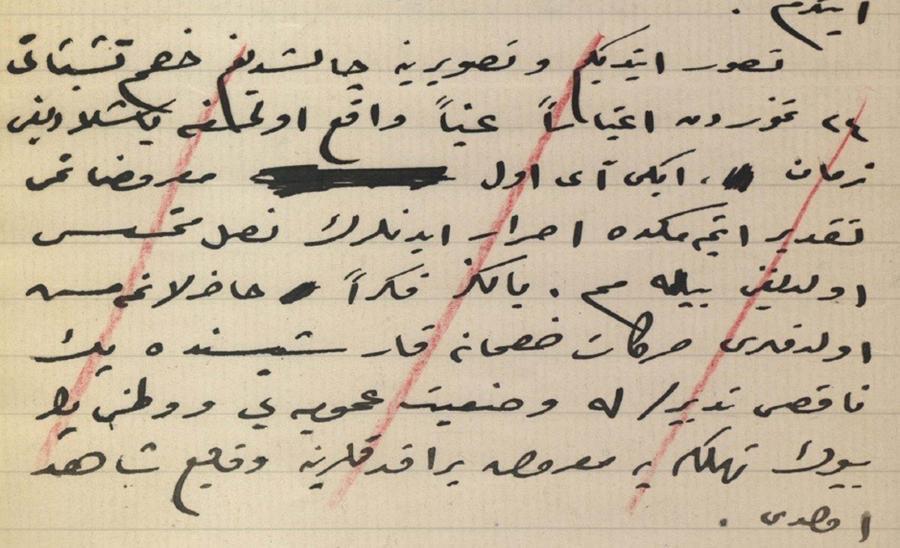 ایتدم .
تصور ایتدیکم و تصویرینه چالشدیغم خصم تشبثاتی
٢٤ تموزدن اعتباراً عیناً واقع اولمغه باشلادیغی
زمان ، ایکی آی اول معروضاتمی
تقدیر ایتمکده اصرار ایدنلرك نصل متحسس
اولدیغنی بیلمم . یالکز فکراً حاضرلانمامش
اولدقلری حرکات خصمانه قارشیسنده پك
ناقص تدبیرلرله وضعیت عمومیه یی و وطنی
بیوك تهلکه یه معروض براقدقلرینه وقایع شاهد
اولدی .